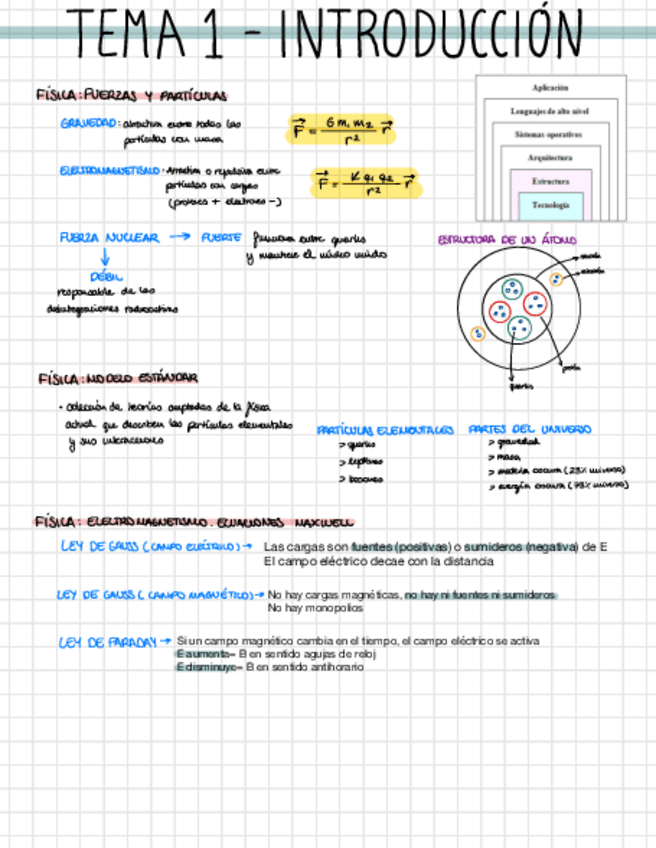 TEMA 1 - INTRODUCCIÓN
FÍSICA: FUERZAS Y PARTÍCULAS
GRAVEDAD: atracción entre todas las
partículas con masa
F = G m1 m2 / r² r
ELECTROMAGNETISMO: Atracción o repulsión entre
partículas con cargas
(protones + electrones -)
F = K q1 q2 / r² r
Aplicación
Lenguajes de alto nivel
Sistemas operativos
Arquitectura
Estructura
Tecnología
FUERZA NUCLEAR → FUERTE funciona entre quarks
y mantiene el núcleo unido
↓
DÉBIL
responsable de las
desintegraciones radioactivas
ESTRUCTURA DE UN ÁTOMO
quarks
FÍSICA: MODELO ESTÁNDAR
· colección de teorías aceptadas de la física
actual que describen las partículas elementales
y sus interacciones
PARTÍCULAS ELEMENTALES
> quarks
> leptones
> bosones
PARTES DEL UNIVERSO
> gravedad
> masa
> materia oscura (23% universo)
> energía oscura (73% universo)
FÍSICA: ELECTROMAGNETISMO. ECUACIONES MAXWELL
LEY DE GAUSS (CAMPO ELÉCTRICO) → Las cargas son fuentes (positivas) o sumideros (negativa) de E
El campo eléctrico decae con la distancia
LEY DE GAUSS (CAMPO MAGNÉTICO) → No hay cargas magnéticas, no hay ni fuentes ni sumideros
No hay monopolios
LEY DE FARADAY → Si un campo magnético cambia en el tiempo, el campo eléctrico se activa
E aumenta= B en sentido agujas de reloj
E disminuye= B en sentido antihorario